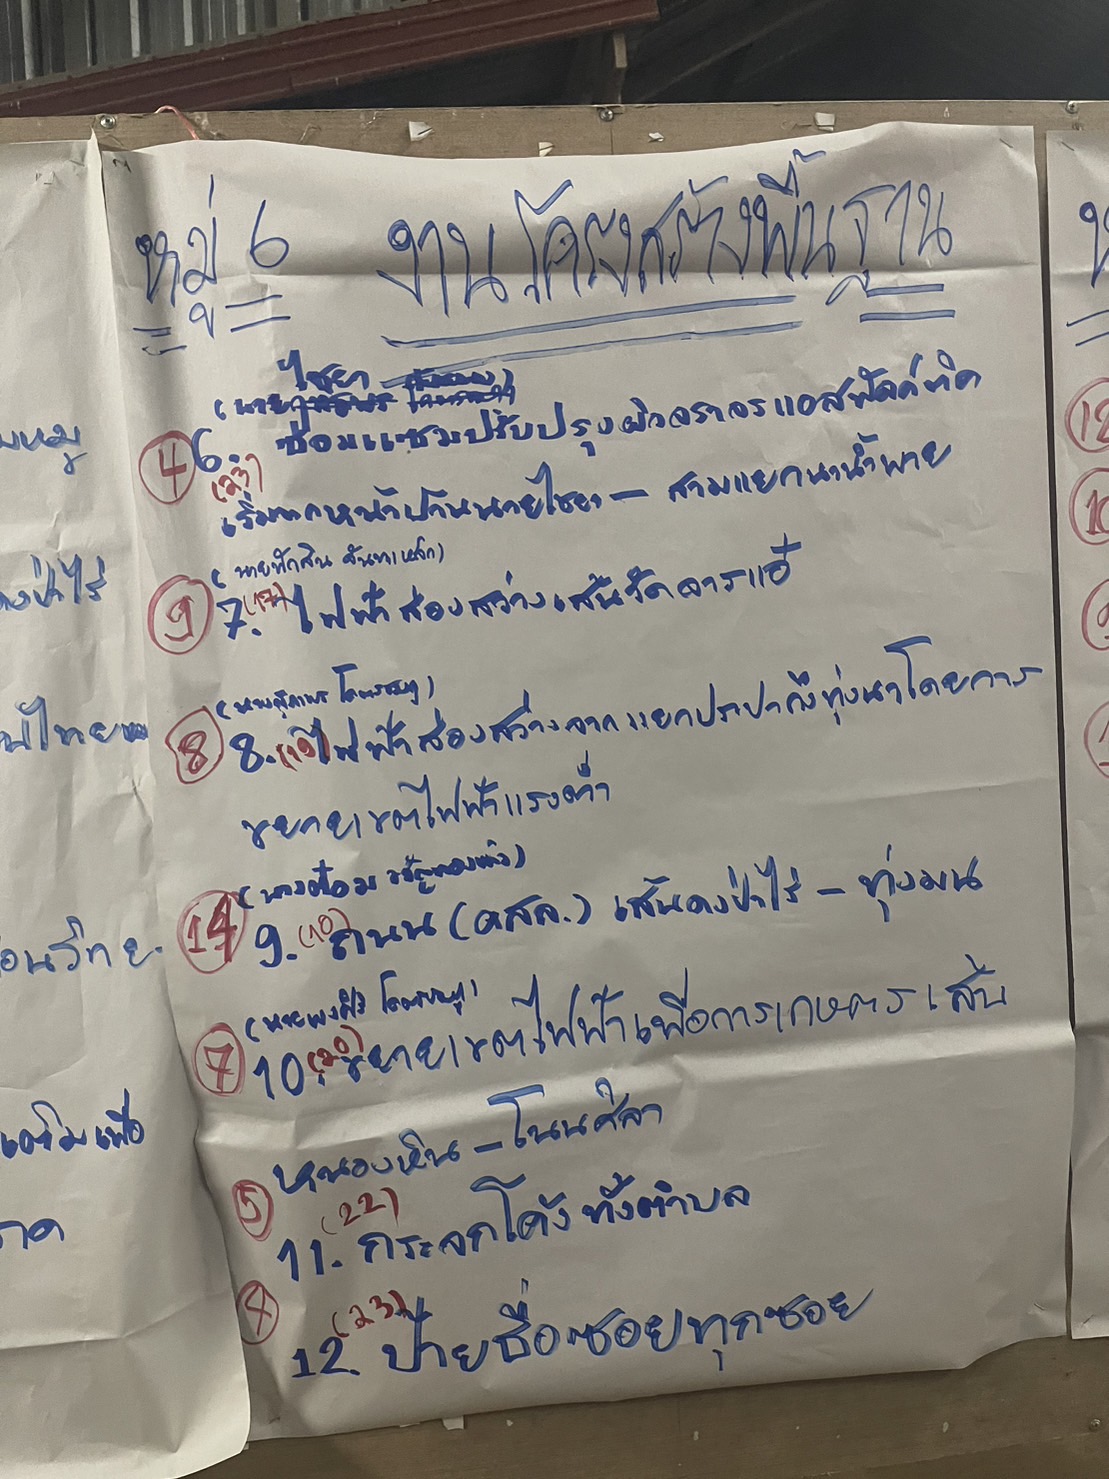 หมู่ 6 งานโครงสร้างพื้นฐาน
ไชยา
(นาย
④ 6. ซ่อมแซมปรับปรุงผิวจราจรแอสฟัลท์ติค
(23)
เริ่มจากหน้าบ้านนายไชยา - สามแยกนาน้ำพาย
(นายทักสิน จันทาเหล็ก)
⑨ 7. (17) ไฟฟ้าส่องสว่างเส้นวัดอารแอ๊
(นายสุภาพร โคตรชมภู)
⑧ 8. (19) ไฟฟ้าส่องสว่างจากแยกประปาถึงทุ่งนาโดยการ
ขยายเขตไฟฟ้าแรงต่ำ
(นางต้อม ขวัญทองแก้ว)
⑭ 9. (10) ถนน (คสล.) เส้นดงป่าไร่ - ทุ่งมน
(นายพงศิริ โคตรชมภู)
⑦ 10. (20) ขยายเขตไฟฟ้าเพื่อการเกษตร เส้น
หนองหิน - โนนศิลา
⑤ (22)
11. กระจกโค้ง ทั้งตำบล
④ (23)
12. ป้ายชื่อซอยทุกซอย
มหมู
ดงป่าไร่
ไทย
อนวิทย.
เสริมเพื่อ
ภาค